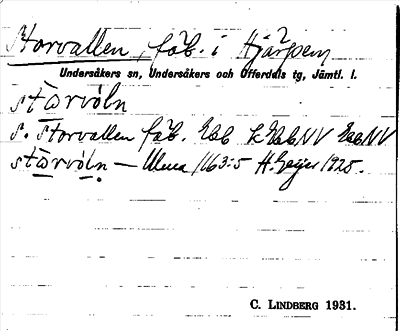 Storvallen, fäb. i Hjärpen
Undersåkers sn, Undersåkers och Offerdals tg, Jämtl. l.
stɷrvöln
s. Storvallen fäb. Eab
stɷrvöln — Ulma 1163:5 H. Geijer 1925.
C. LINDBERG 1931.